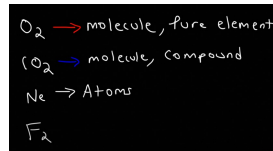 O₂ → molecule, pure element
CO₂ → molecule, compound
Ne → Atoms
F₂